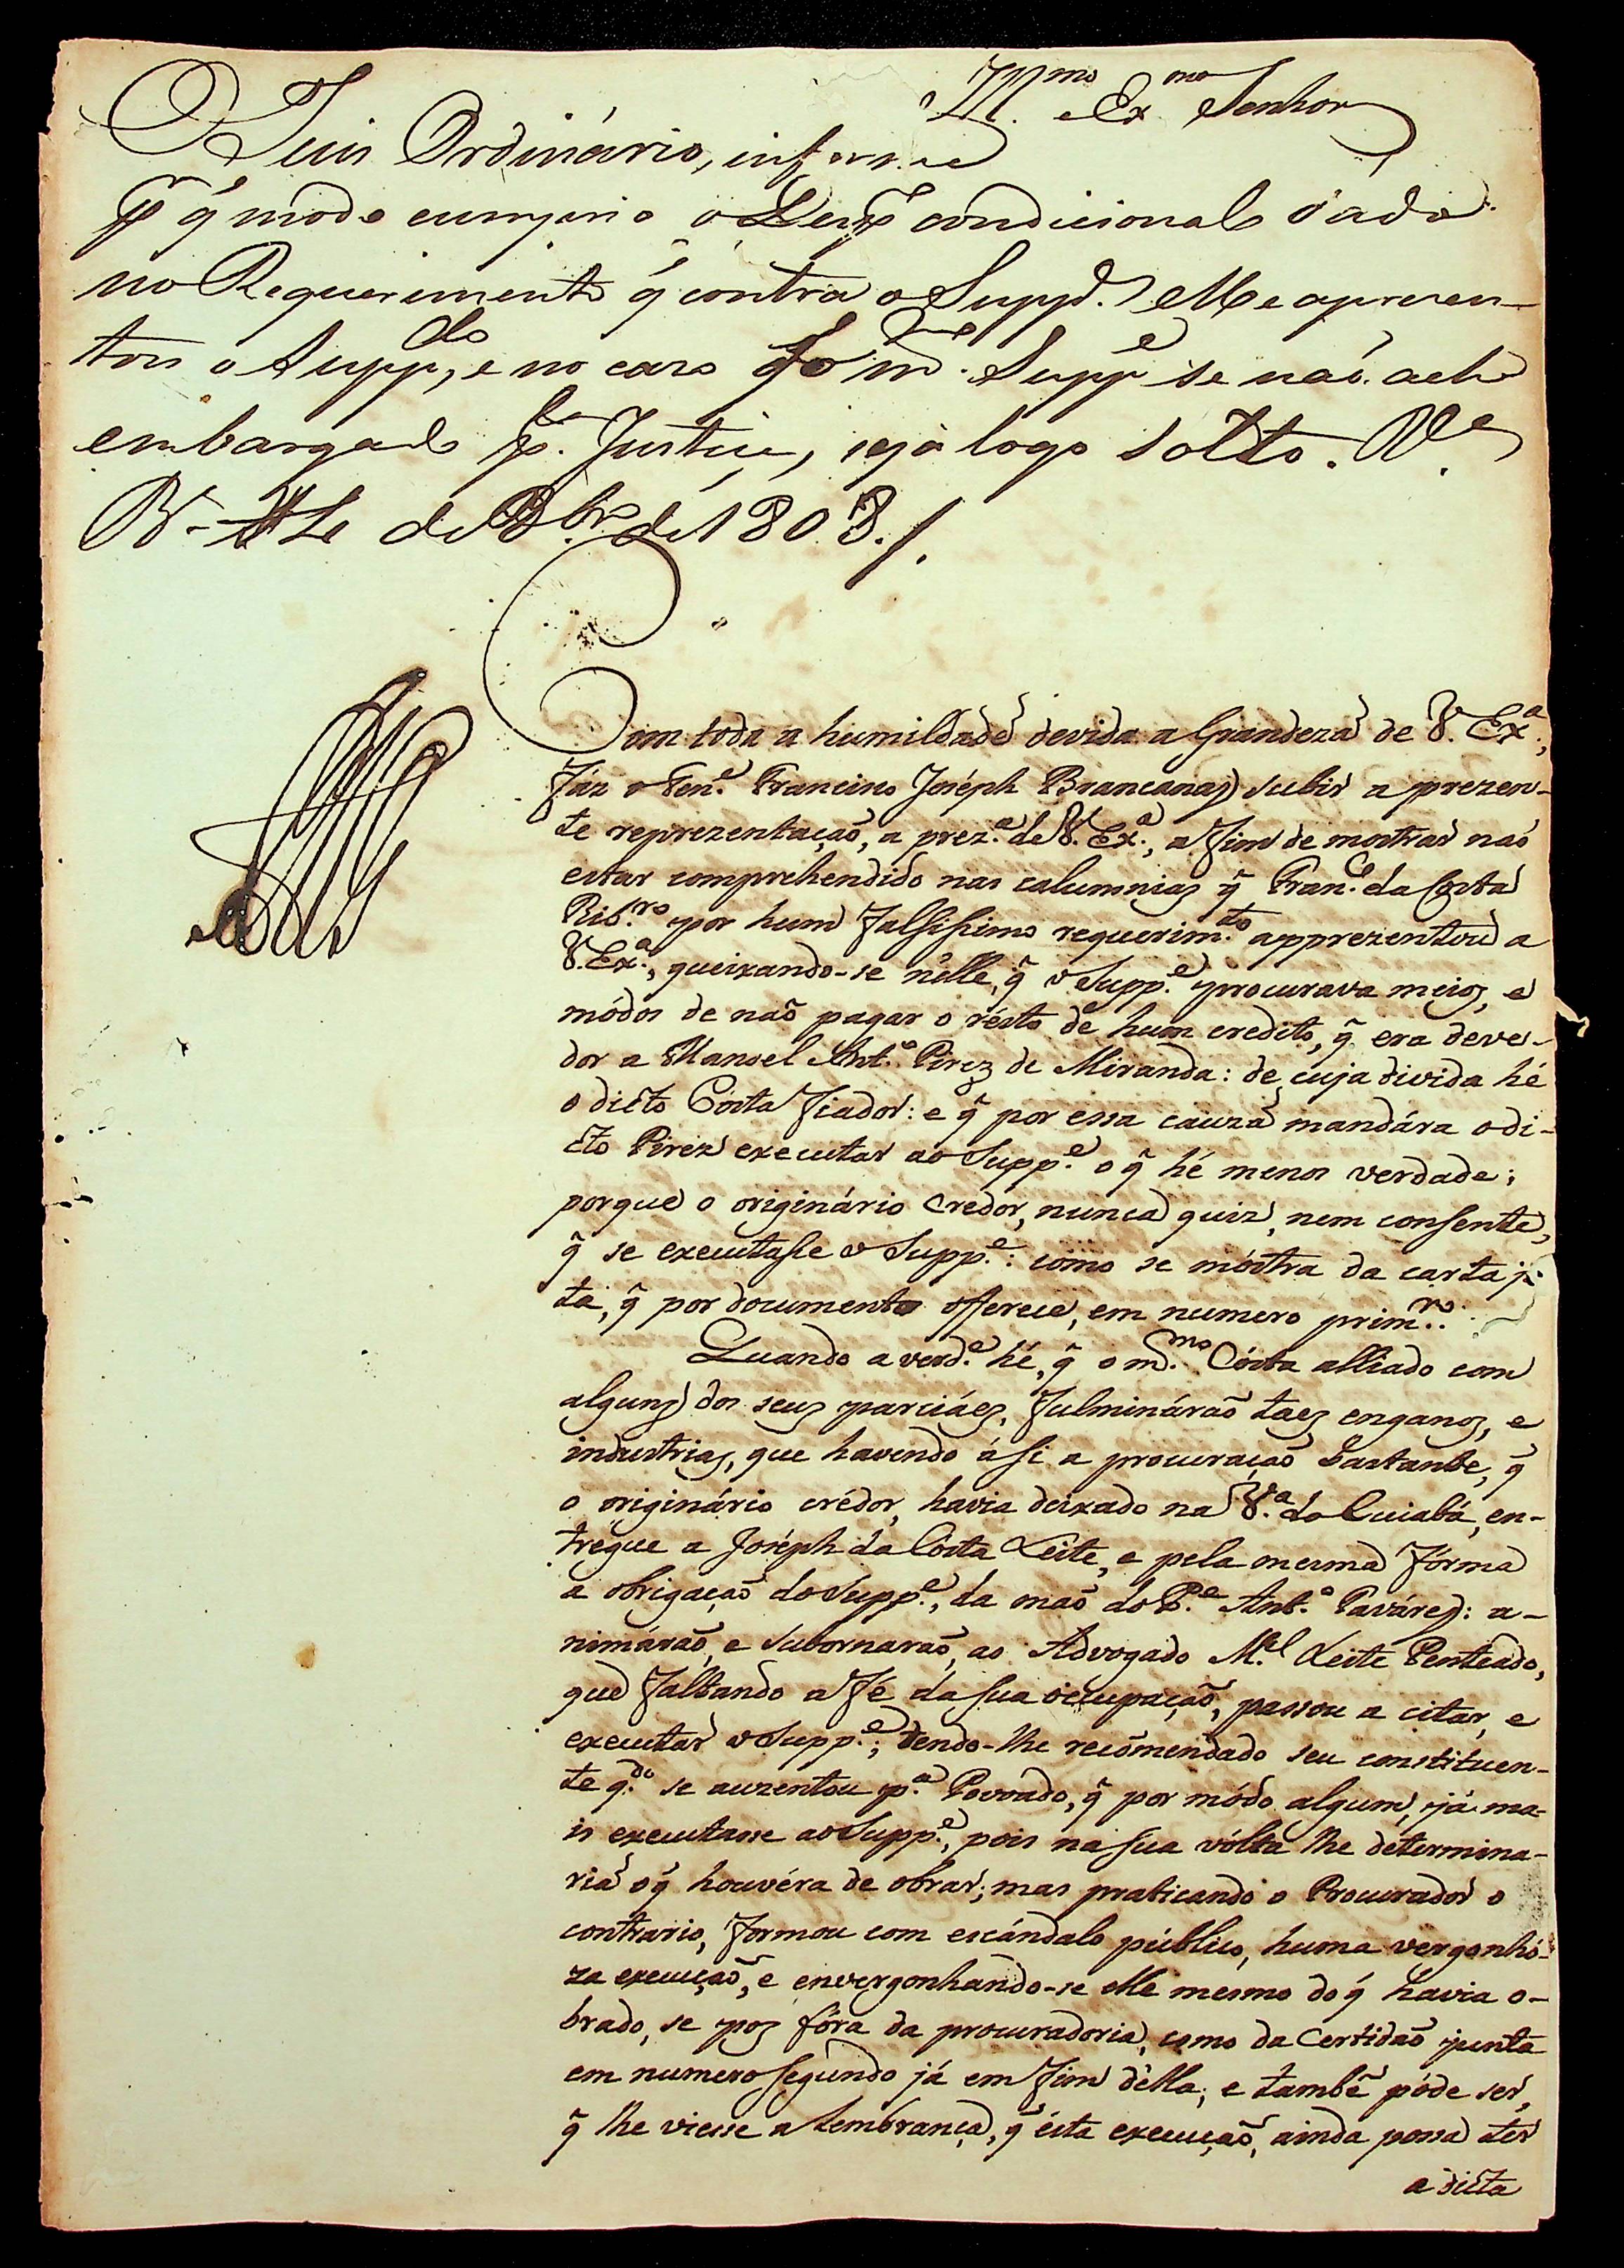 Ill.mo e Ex.mo Senhor
O Juis Ordinário, informe
q̃ modo cumprio o Desp.º condicional dado
no Requerimento q̃ contra o Supp.e Me aprezen-
tou o Supp.do, e no cazo q̃ o m.mo Supp.e se naõ ache
embargado p.la Justiça, seja logo solto. V.a
B.a de 8br.o de 1803./.
Com toda a humildade devida a Grandeza de V. Ex.a,
Fáz o Ten.e Francisco Joséph Brancanaz subir a prezen-
te reprezentaçaõ, a prez.a de V. Ex.a, a Fim de mostrar naõ
estar comprehendido nas calumnias q̃ Fran.co da Costa
Rib.ro por hum Falsissimo requerim.to apprezentou a
V. Ex.a, queixando-se nélle, q̃ o Supp.e procurava meios, e
módos de naõ pagar o résto de hum credito, q̃ era deve-
dor a Manoel Ant.o Pirez de Miranda: de cuja divida hé
o dicto Costa Fiador: e q̃ por essa cauza mandára o di-
cto Pirez executar ao Supp.e o q̃ hé menos verdade;
porque o originário credor, nunca quiz, nem consente,
q̃ se executasse o Supp.e: como se móstra da carta j.
ta, q̃ por documento offerece, em numero prim.ro.
Quando a verd.e hé, q̃ o m.mo Cósta alliado com
alguns dos seus parciáes, Fulmináraõ taes enganos, e
industrias, que havendo ási a procuraçaõ bastante, q̃
o originário crédor, havia deixado na V.a do Cuiabá, en-
trégue a Joséph da Cósta Leite, e pela mesma Fórma
a obrigaçaõ do Supp.e, da maõ do P.e Ant.o Taváres: a-
nimáraõ, e subornaraõ, ao Advogado M.el Leite Penteado,
que Faltando a Fé da sua occupaçaõ, passou a citar, e
executar o Supp.e; tendo-lhe recõmendado seu constituen-
te q.do se auzentou p.a Povoado, q̃ por módo algum, já ma-
is executasse ao Supp.e, pois na sua vólta lhe determina-
ria o q̃ houvéra de obrar; mas praticando o Procurador o
contrario, Formou com escándalo público, huma vergonhó-
za execuçaõ, e envergonhando-se elle mesmo do q̃ havia o-
brado, se pos fóra da procuradoria, como da Certidaõ junta
em numero segundo já em Fim délla; e tambẽ póde ser,
q̃ lhe viesse a lembrança, q̃ ésta execuçaõ, ainda possa ter
a dicta